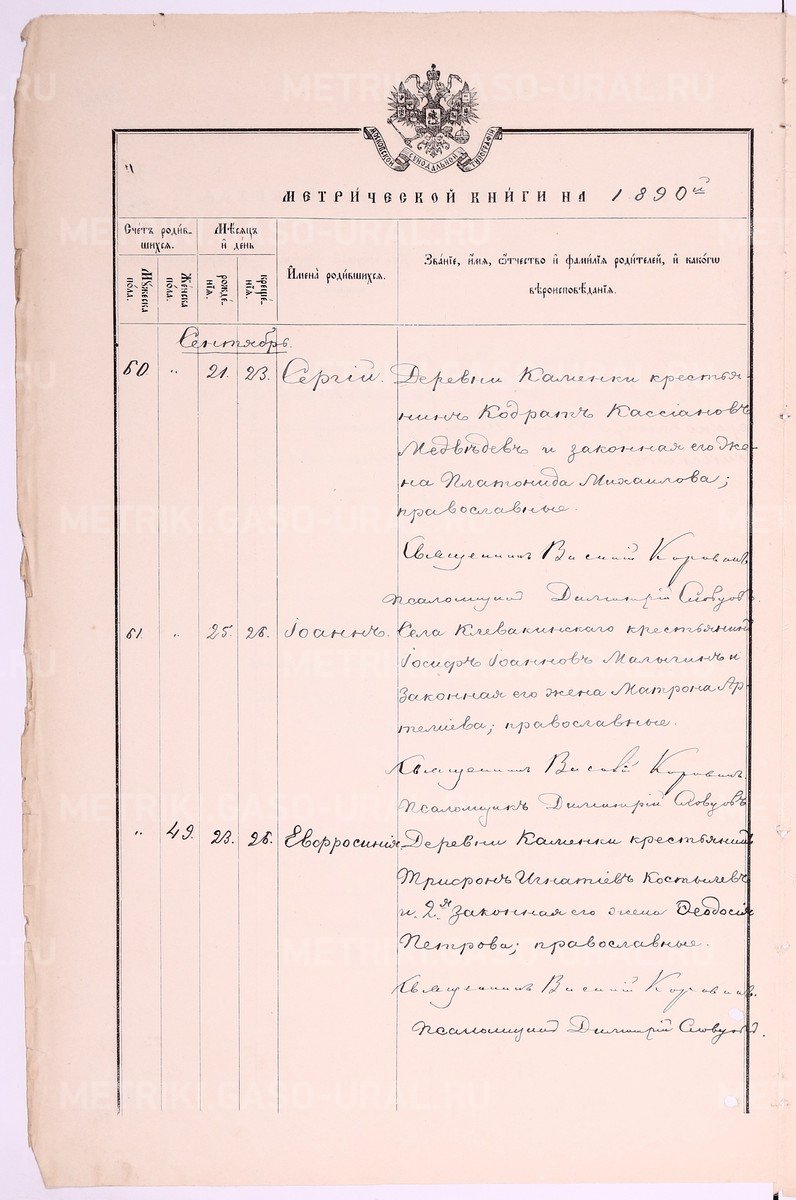 METRIK.GASO-URAL.RU
МОСКОВСКОЙ СѴНОДАЛЬНОЙ ТИПОГРАФІИ
МЕТРИ́ЧЕСКОЙ КНИ́ГИ НА 1890й
Счетъ роди́вшихся.
Мꙋ́жеска по́ла.
Же́нска по́ла.
Мѣ́сяцъ и҆ де́нь
рожде́нїя.
креще́нїя.
И҆мена̀ роди́вшихся.
Зва́нїе, и҆́мѧ, ѻ҆́тчество и҆ фами́лїѧ роди́телей, и҆ како́гѡ
вѣроисповѣ́данїѧ.
Сентябрь.
60 " 21. 23. Сергій. Деревни Каменки крестья-
нинъ Кодратъ Кассіановъ
Медвѣдевъ и законная его же-
на Платонида Михаилова;
православные.
Священникъ Василій Коровинъ
Псаломщикъ Димитрій Словцовъ.
61. " 25. 26. Іоаннъ. Села Клевакинскаго крестьянинъ
Іосифъ Іоанновъ Малыгинъ и
законная его жена Матрона Ар-
теміева; православные.
Священникъ Василій Коровинъ.
Псаломщикъ Димитрій Словцовъ
" 49. 23. 26. Евфросинія Деревни Каменки крестьянинъ
Трифонъ Игнатіевъ Костылевъ
и 2.я законная его жена Ѳеодосія
Петрова; православные.
Священникъ Василій Коровинъ.
Псаломщикъ Димитрій Словцовъ.